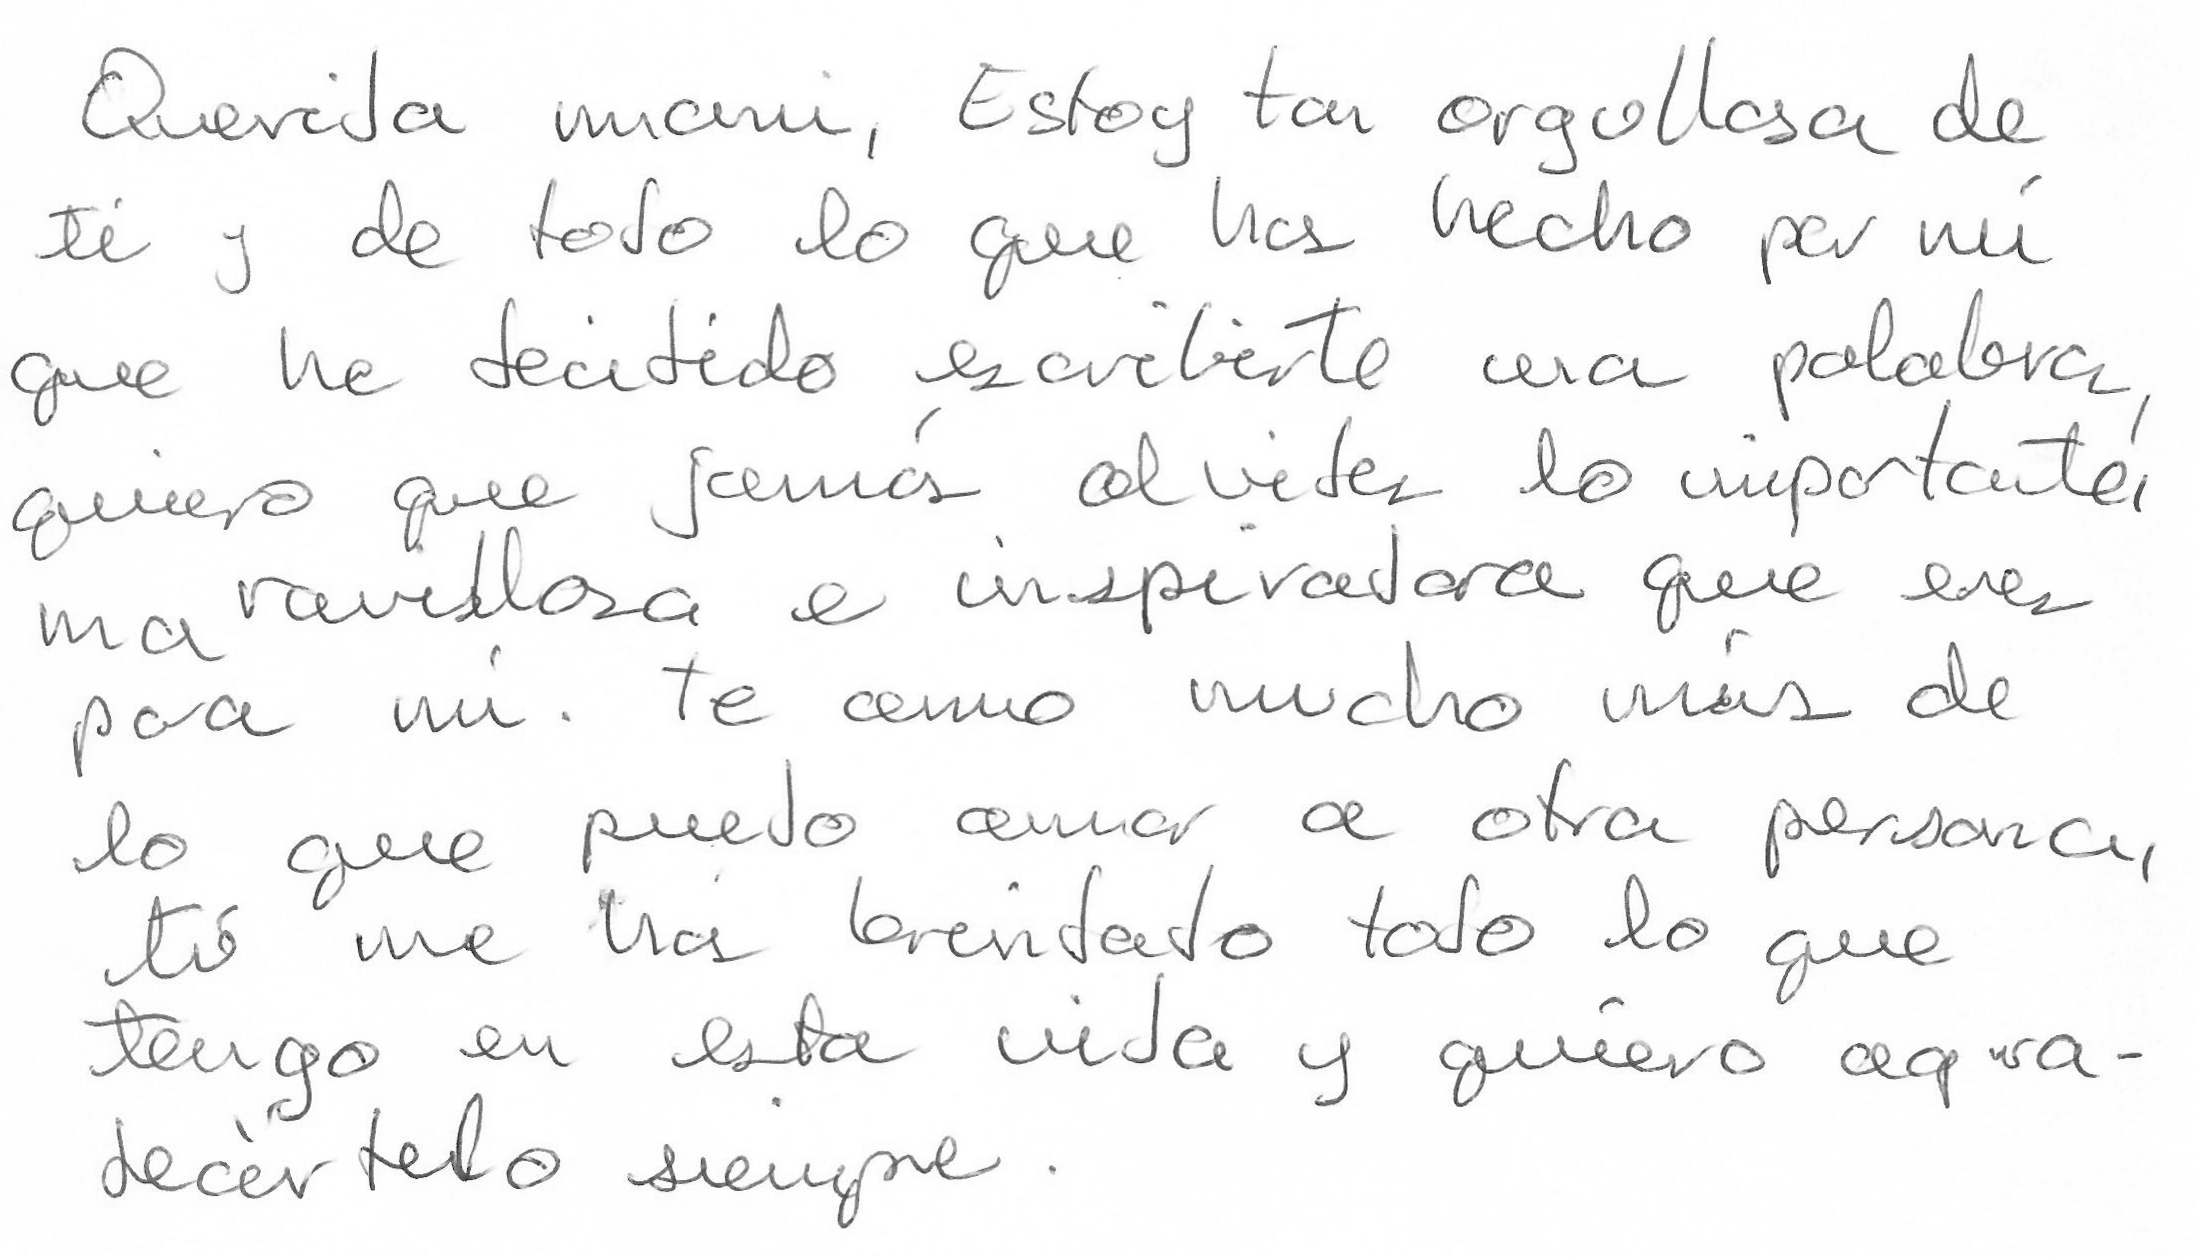 Querida mami, Estoy tan orgullosa de
ti y de todo lo que has hecho por mí
que he decidido escribirte una palabra,
quiero que jamás olvides lo importante,
maravillosa e inspiradora que eres
para mí. Te amo mucho más de
lo que puedo amar a otra persona,
tú me has brindado todo lo que
tengo en esta vida y quiero agra-
decértelo siempre.